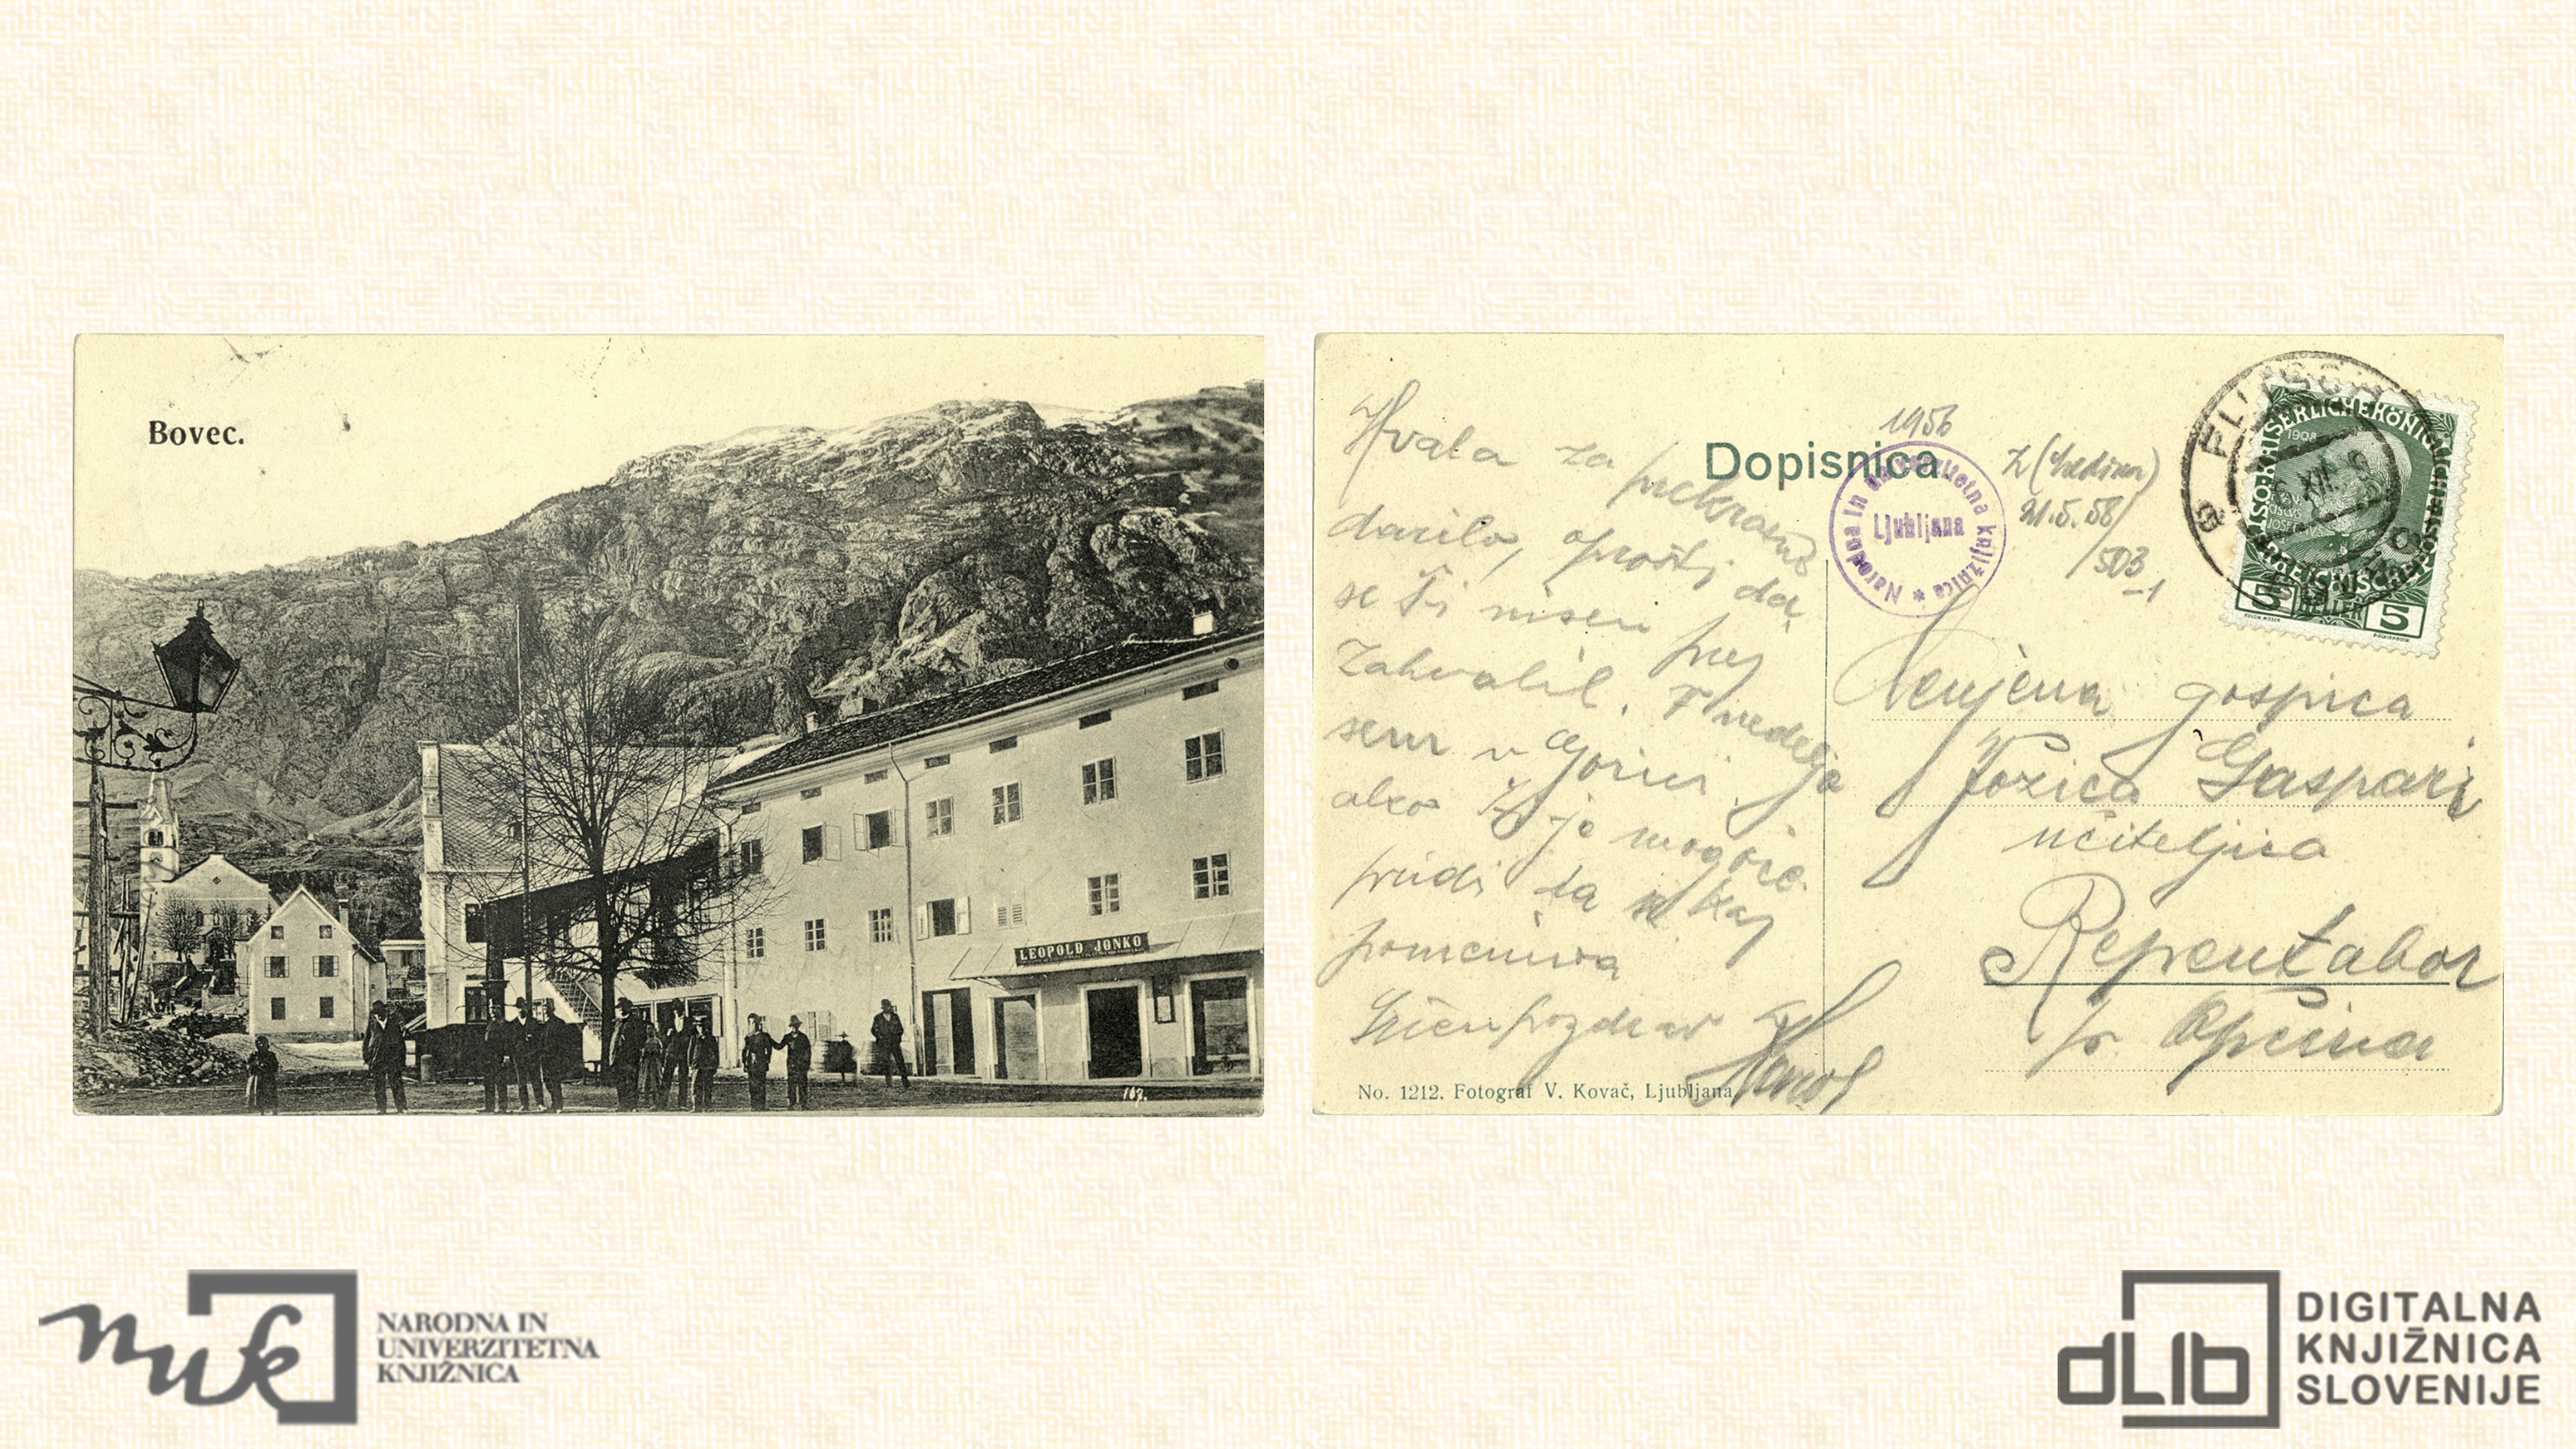 Bovec.
LEOPOLD JONKO
167.
Hvala za prekrasno
darilo, oprosti da
se Ti nisem prej
zahvalil. V nedeljo
sem v Gorici
ako Ti je mogoče
pridi da se kaj
pomeniva
Srčen pozdrav
No. 1212. Fotograf V. Kovač, Ljubljana
Dopisnica
1956
Narodna in univerzitetna knjižnica *
Ljubljana
21.5.58
503
-1
FL
XII
KAISERLICHE KÖNIGLICHE
ÖSTERREICHISCHE POST
1908
5 HELLER 5
Cenjena gospica
Jozica Gaspari
učiteljica
Repentabor
p. Opčina
nuk
NARODNA IN
UNIVERZITETNA
KNJIŽNICA
dLib
DIGITALNA
KNJIŽNICA
SLOVENIJE